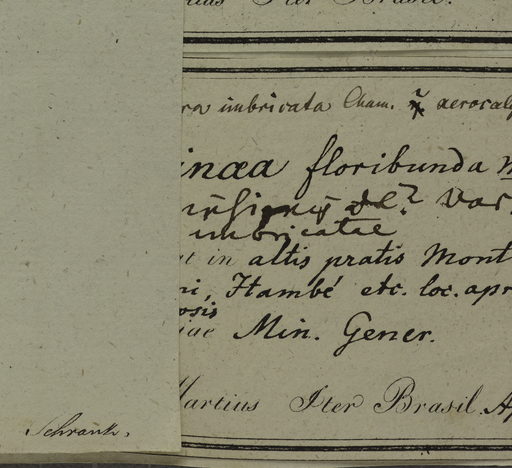 Iter Brasil.
ra imbricata Cham.
inaea floribunda M
Var.
imbricatae
at in altis pratis Mont
ni, Itambé etc. loc. apr
osis
iae Min. Gener.
Martius Iter Brasil. Ap
Schrank.